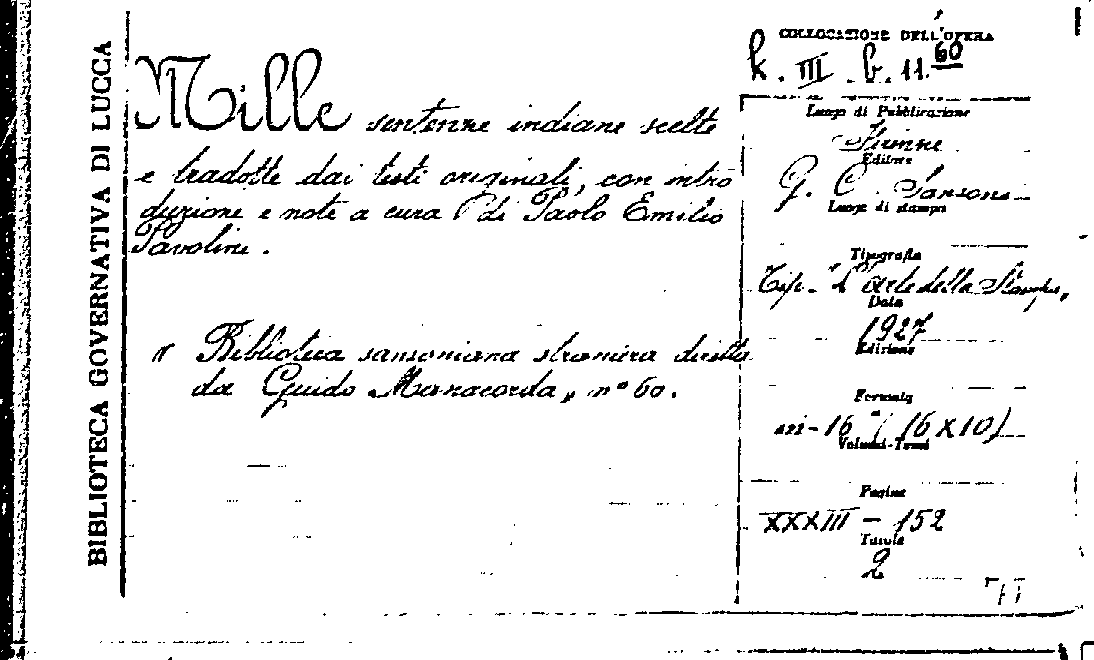 BIBLIOTECA GOVERNATIVA DI LUCCA
Mille sentenze indiane scelte
e tradotte dai testi originali, con intro
duzione e note a cura di Paolo Emilio
Pavolini.
" Biblioteca sansoniana straniera diretta
da Guido Manacorda „ n° 60.
COLLOCAZIONE DELL'OPERA
k. III. b. 11. 60
Luogo di Pubblicazione
Firenze
Editore
G. C. Sansoni
Luogo di stampa
Tipografia
Tip. "L'arte della Stampa„
Data
1927
Edizione
Formato
in-16° (16x10)
Volumi-Tomi
Pagine
XXXIII - 152
Tavole
2